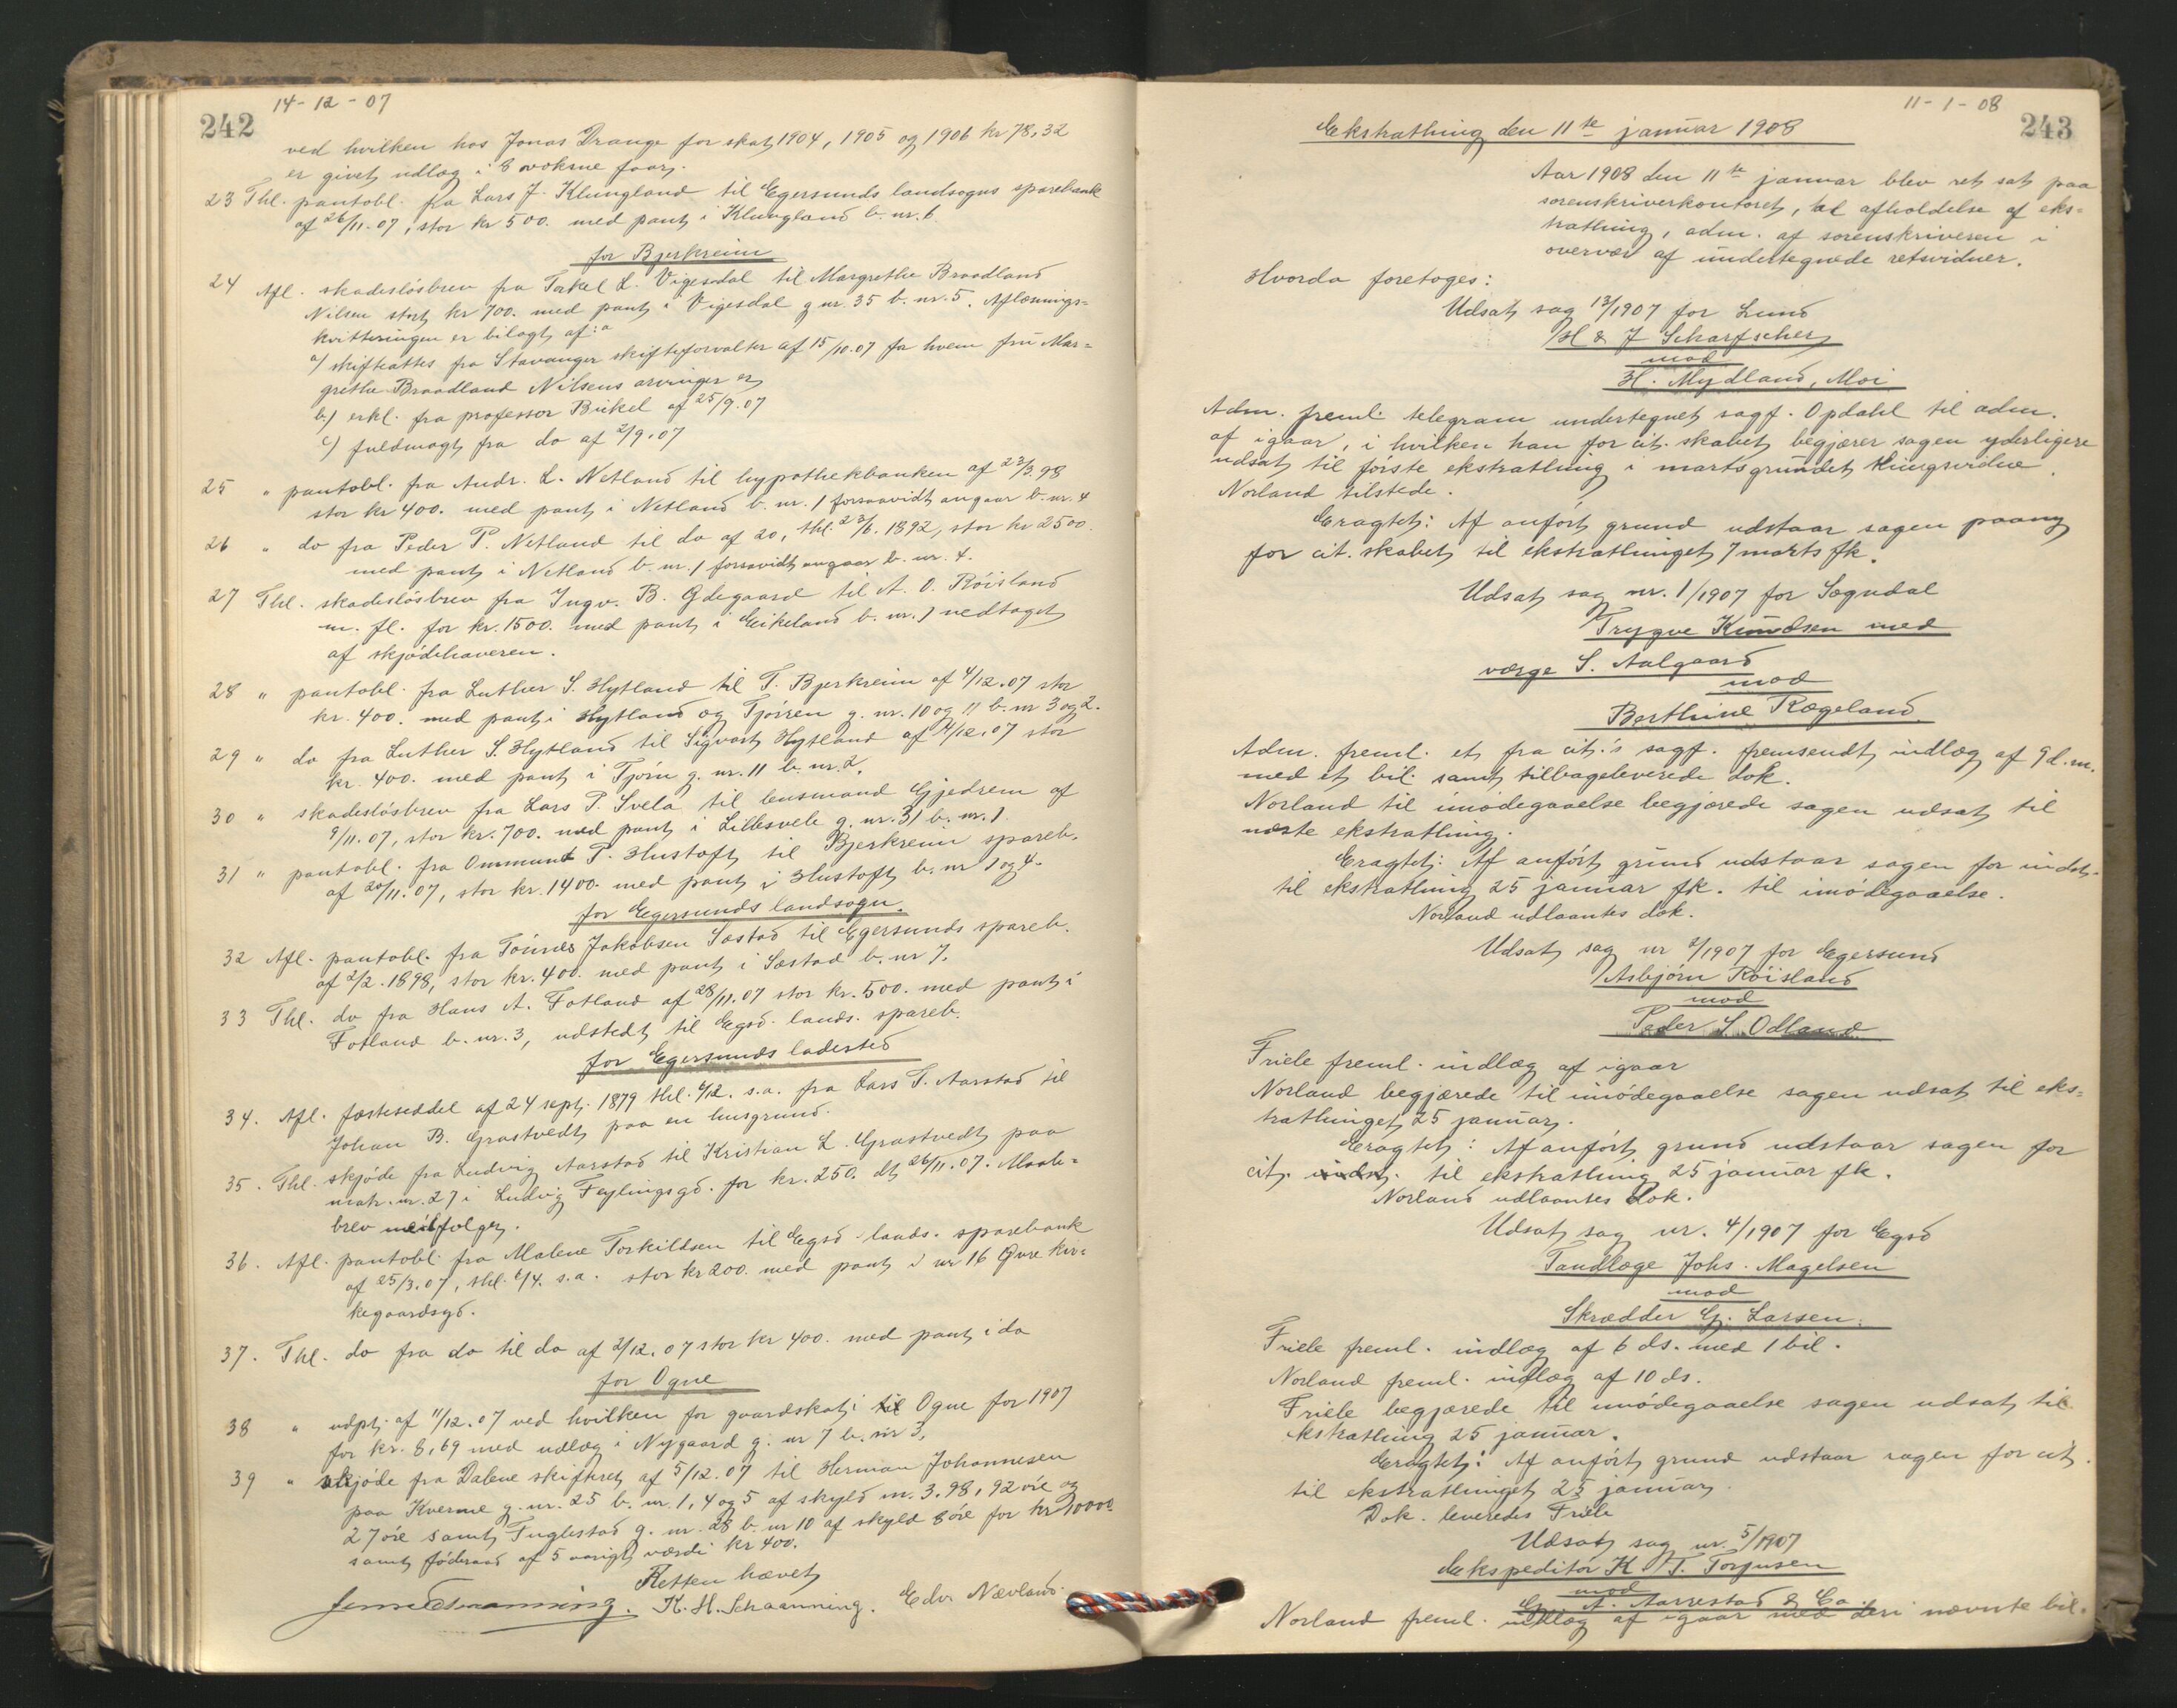 242
14-12-07
ved hvilken hos Jonas Drange for skat 1904, 1905 og 1906 kr 78,32
er givet udlæg i 8 voksne faar.
23 Thl. pantobl. fra Lars J. Klungland til Egersunds landsogns sparebank
af 26/11.07, stor kr 500. med pant i Klungland b. nr. 6.
for Bjerkreim
24 Afl. skadesløsbrev fra Torkel L. Vigesdal til Margrethe Braadland
Nilsen stort kr 700. med pant i Vigesdal g nr. 35 b. nr. 5. Aflæsnings=
kvitteringen er bilagt af:
a) skifteattes fra Stavanger skifteforvalter af 15/10.07 for hvem fru Mar=
grethe Braadland Nilsens arvinger er
b) erkl. fra professor Bickel af 25/9.07
c) fuldmagt fra do af 2/9.07
25 " pantobl. fra Andr. L. Netland til hypothekbanken af 23/3.98
stor kr 400. med pant i Netland b. nr. 1 forsaavidt angaar b. nr. 4
26 " do fra Peder P. Netland til do af 20, thl. 23/6. 1892, stor kr 2500.
med pant i Netland b. nr. 1 forsavidt angaar b. nr. 4.
27 Thl. skadesløsbrev fra Ingv. B. Ødegaard til A. O. Röisland
m. fl. for kr. 1500. med pant i Eikeland b. nr. 1 vedtaget
af skjødehaveren.
28 " pantobl. fra Luther S. Hytland til T. Bjerkreim af 4/12.07 stor
kr. 400. med pant i Hytland og Tjörn g. nr. 10 og 11 b. nr 3 og 2.
29 " do fra Luther S. Hytland til Sigvart Hytland af 4/12.07 stor
kr. 400. med pant i Tjörn g. nr. 11 b. nr. 2.
30 " skadesløsbrev fra Lars P. Svela til lensmand Gjedrem af
9/11.07, stor kr. 700. med pant i Lillesvele g. nr. 31 b. nr. 1.
31 " pantobl. fra Ommund P. Hustoft til Bjerkreim spareb.
af 20/11.07, stor kr. 1400. med pant i Hustoft b. nr 1 og 4.
for Egersunds landsogn.
32 Afl. pantobl. fra Tönnes Jakobsen Sæstad til Egersunds spareb.
af 2/2. 1898, stor kr. 400. med pant i Sæstad b. nr 7.
33 Thl. do fra Hans A. Fotland af 28/11.07 stor kr. 500. med pant i
Fotland b. nr. 3, udstedt til Egsd. lands. spareb.
for Egersunds ladested
34. Afl. fæsteseddel af 24 sept. 1879 thl. 6/12. s.a. fra Lars T. Aarstad til
Johan B. Grastvedt paa en husgrund.
35. Thl. skjøde fra Ludvig Aarstad til Kristian L. Grastvedt paa
matr. nr. 27 i Ludvig Feylingsgd. for kr. 250. dt 26/11.07. Maale=
brev medfølger.
36. Afl. pantobl. fra Malene Torkildsen til Egsd. lands. sparebank
af 25/3.07, thl. 6/4. s.a. stor kr 200. med pant i nr 16 Øvre kir=
kegaardsgd.
37. Thl. do fra do til do af 2/12.07 stor kr 400. med pant i do
for Ogne
38 " udpt. af 11/12.07 ved hvilken for gaardskat i til Ogne for 1907
for kr. 8,69 med udlæg i Nygaard g. nr 7 b. nr 3.
39 " skjøde fra Dalene skifteret af 5/12.07 til Herman Johannesen
paa Kverme g. nr. 25 b. nr. 1, 4 og 5 af skyld m. 3.98, 92 øre og
27 øre samt Fuglestad g. nr. 28 b. nr 10 af skyld 8 øre for kr 10000.
samt föderaad af 5 aarigt værdi kr 400.
Retten hævet
K. H. Schaanning. Edv. Nævland.
11-1-08
243
Ekstrathing den 11te januar 1908
Aar 1908 den 11te januar blev ret sat paa
sorenskriverkontoret, til afholdelse af eks=
trathing, adm. af sorenskriveren i
overvær af undertegnede retsvidner.
Hvorda foretoges:
Udsat sag 13/1907 for Lund
H & J Scharfscher
mod
H. Mydland, Moi
Adm. freml. telegram undertegnet sagf. Opdahl til adm.
af igaar, i hvilken han for cit.skabet begjærer sagen yderligere
udsat til første ekstrathing i marts grundet thingsvidne.
Norland tilstede.
Eragtet: Af anført grund udstaar sagen paany
for cit.skabet til ekstrathinget 7 marts fk.
Udsat sag nr. 1/1907 for Sogndal
Trygve Knudsen med
værge S. Aalgaard
mod
Berthine Rægeland
Adm. freml. et fra cit.'s sagf. fremsendt indlæg af 9 d.m.
med et bil. samt tilbageleverede dok.
Norland til imødegaaelse begjærede sagen udsat til
næste ekstrathing.
Eragtet: Af anført grund udstaar sagen for indst.
til ekstrathing 25 januar fk. til imødegaaelse.
Norland udlaantes dok.
Udsat sag nr 2/1907 for Egersund
Asbjörn Röisland
mod
Peder S. Odland
Friele freml. indlæg af igaar
Norland begjærede til imødegaaelse sagen udsat til eks=
trathinget 25 januar.
Eragtet: Af anført grund udstaar sagen for
cit. indst. til ekstrathing 25 januar fk.
Norland udlaantes dok.
Udsat sag nr. 4/1907 for Egsd
Tandlæge Johs. Magelsen
mod
Skrædder G. Larsen.
Friele freml. indlæg af 6 ds. med 1 bil.
Norland freml. indlæg af 10 ds.
Friele begjærede til imødegaaelse sagen udsat til
ekstrathing 25 januar.
Eragtet: Af anført grund udstaar sagen for cit.
til ekstrathinget 25 januar.
Dok. leveredes Friele
Udsat sag nr. 5/1907
Ekspeditör K. T. Torjusen
mod
A. Aarrestad & Co
Norland freml. indlæg af igaar med deri nævnte bil.